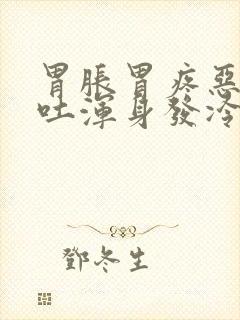 胃脹胃疼惡
吐渾身發冷
鄧冬生